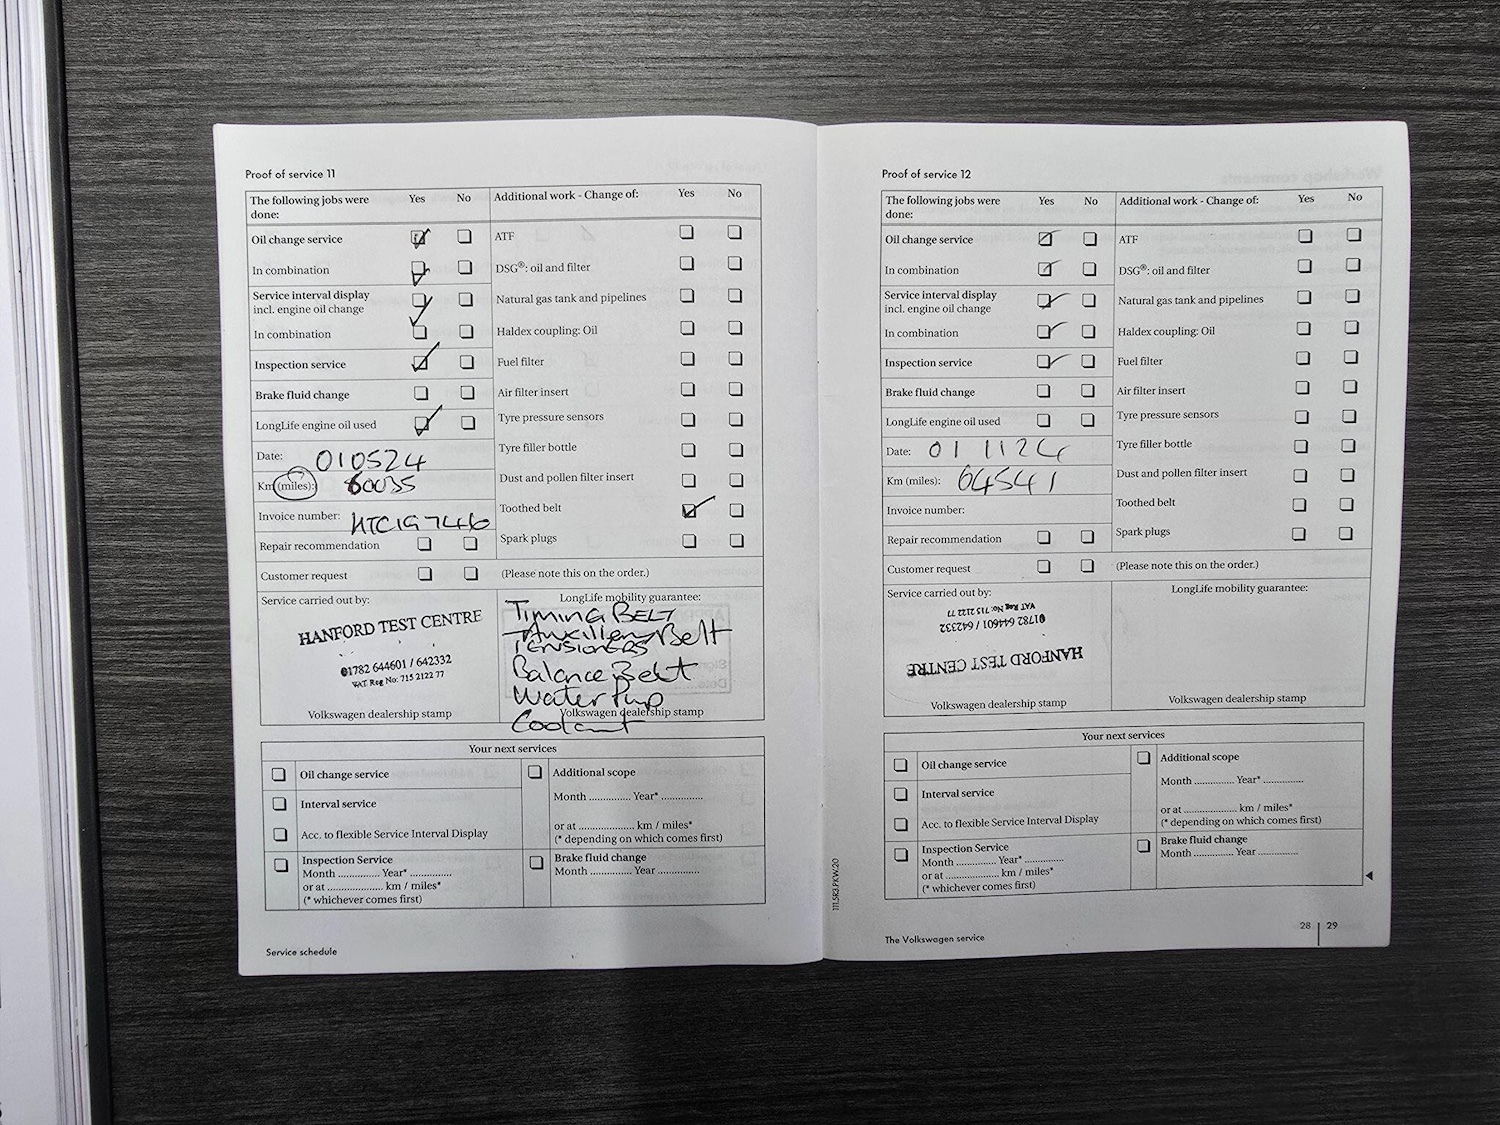 Proof of service 11
The following jobs were done:
Yes
No
Additional work - Change of:
Yes
No
Oil change service
ATF
In combination
DSG®: oil and filter
Service interval display
incl. engine oil change
Natural gas tank and pipelines
In combination
Haldex coupling: Oil
Inspection service
Fuel filter
Brake fluid change
Air filter insert
LongLife engine oil used
Tyre pressure sensors
Date: 010524
Tyre filler bottle
Km (miles): 60035
Dust and pollen filter insert
Invoice number: HTC197446
Toothed belt
Repair recommendation
Spark plugs
Customer request
(Please note this on the order.)
Service carried out by:
HANFORD TEST CENTRE
01782 644601 / 642332
VAT Reg No: 715 2122 77
Volkswagen dealership stamp
LongLife mobility guarantee:
TIMING BELT
Auxiliery Belt
TENSIONERS
Balance Belt
Water Pump
Volkswagen dealership stamp
Coolant
Your next services
Oil change service
Additional scope
Month .............. Year* ..............
Interval service
or at .................. km / miles*
Acc. to flexible Service Interval Display
(* depending on which comes first)
Inspection Service
Month ............. Year* ..............
or at .................. km / miles*
(* whichever comes first)
Brake fluid change
Month .............. Year ..............
Service schedule
Proof of service 12
The following jobs were done:
Yes
No
Additional work - Change of:
Yes
No
Oil change service
ATF
In combination
DSG®: oil and filter
Service interval display
incl. engine oil change
Natural gas tank and pipelines
In combination
Haldex coupling: Oil
Inspection service
Fuel filter
Brake fluid change
Air filter insert
LongLife engine oil used
Tyre pressure sensors
Date: 01 11 24
Tyre filler bottle
Km (miles): 64541
Dust and pollen filter insert
Invoice number:
Toothed belt
Repair recommendation
Spark plugs
Customer request
(Please note this on the order.)
Service carried out by:
HANFORD TEST CENTRE
01782 644601 / 642332
VAT Reg No: 715 2122 77
Volkswagen dealership stamp
LongLife mobility guarantee:
Volkswagen dealership stamp
Your next services
Oil change service
Additional scope
Month .............. Year* ..............
Interval service
or at .................. km / miles*
Acc. to flexible Service Interval Display
(* depending on which comes first)
Inspection Service
Month ............. Year* ..............
or at .................. km / miles*
(* whichever comes first)
Brake fluid change
Month .............. Year ..............
111.5R3.PKW.20
The Volkswagen service
28 | 29